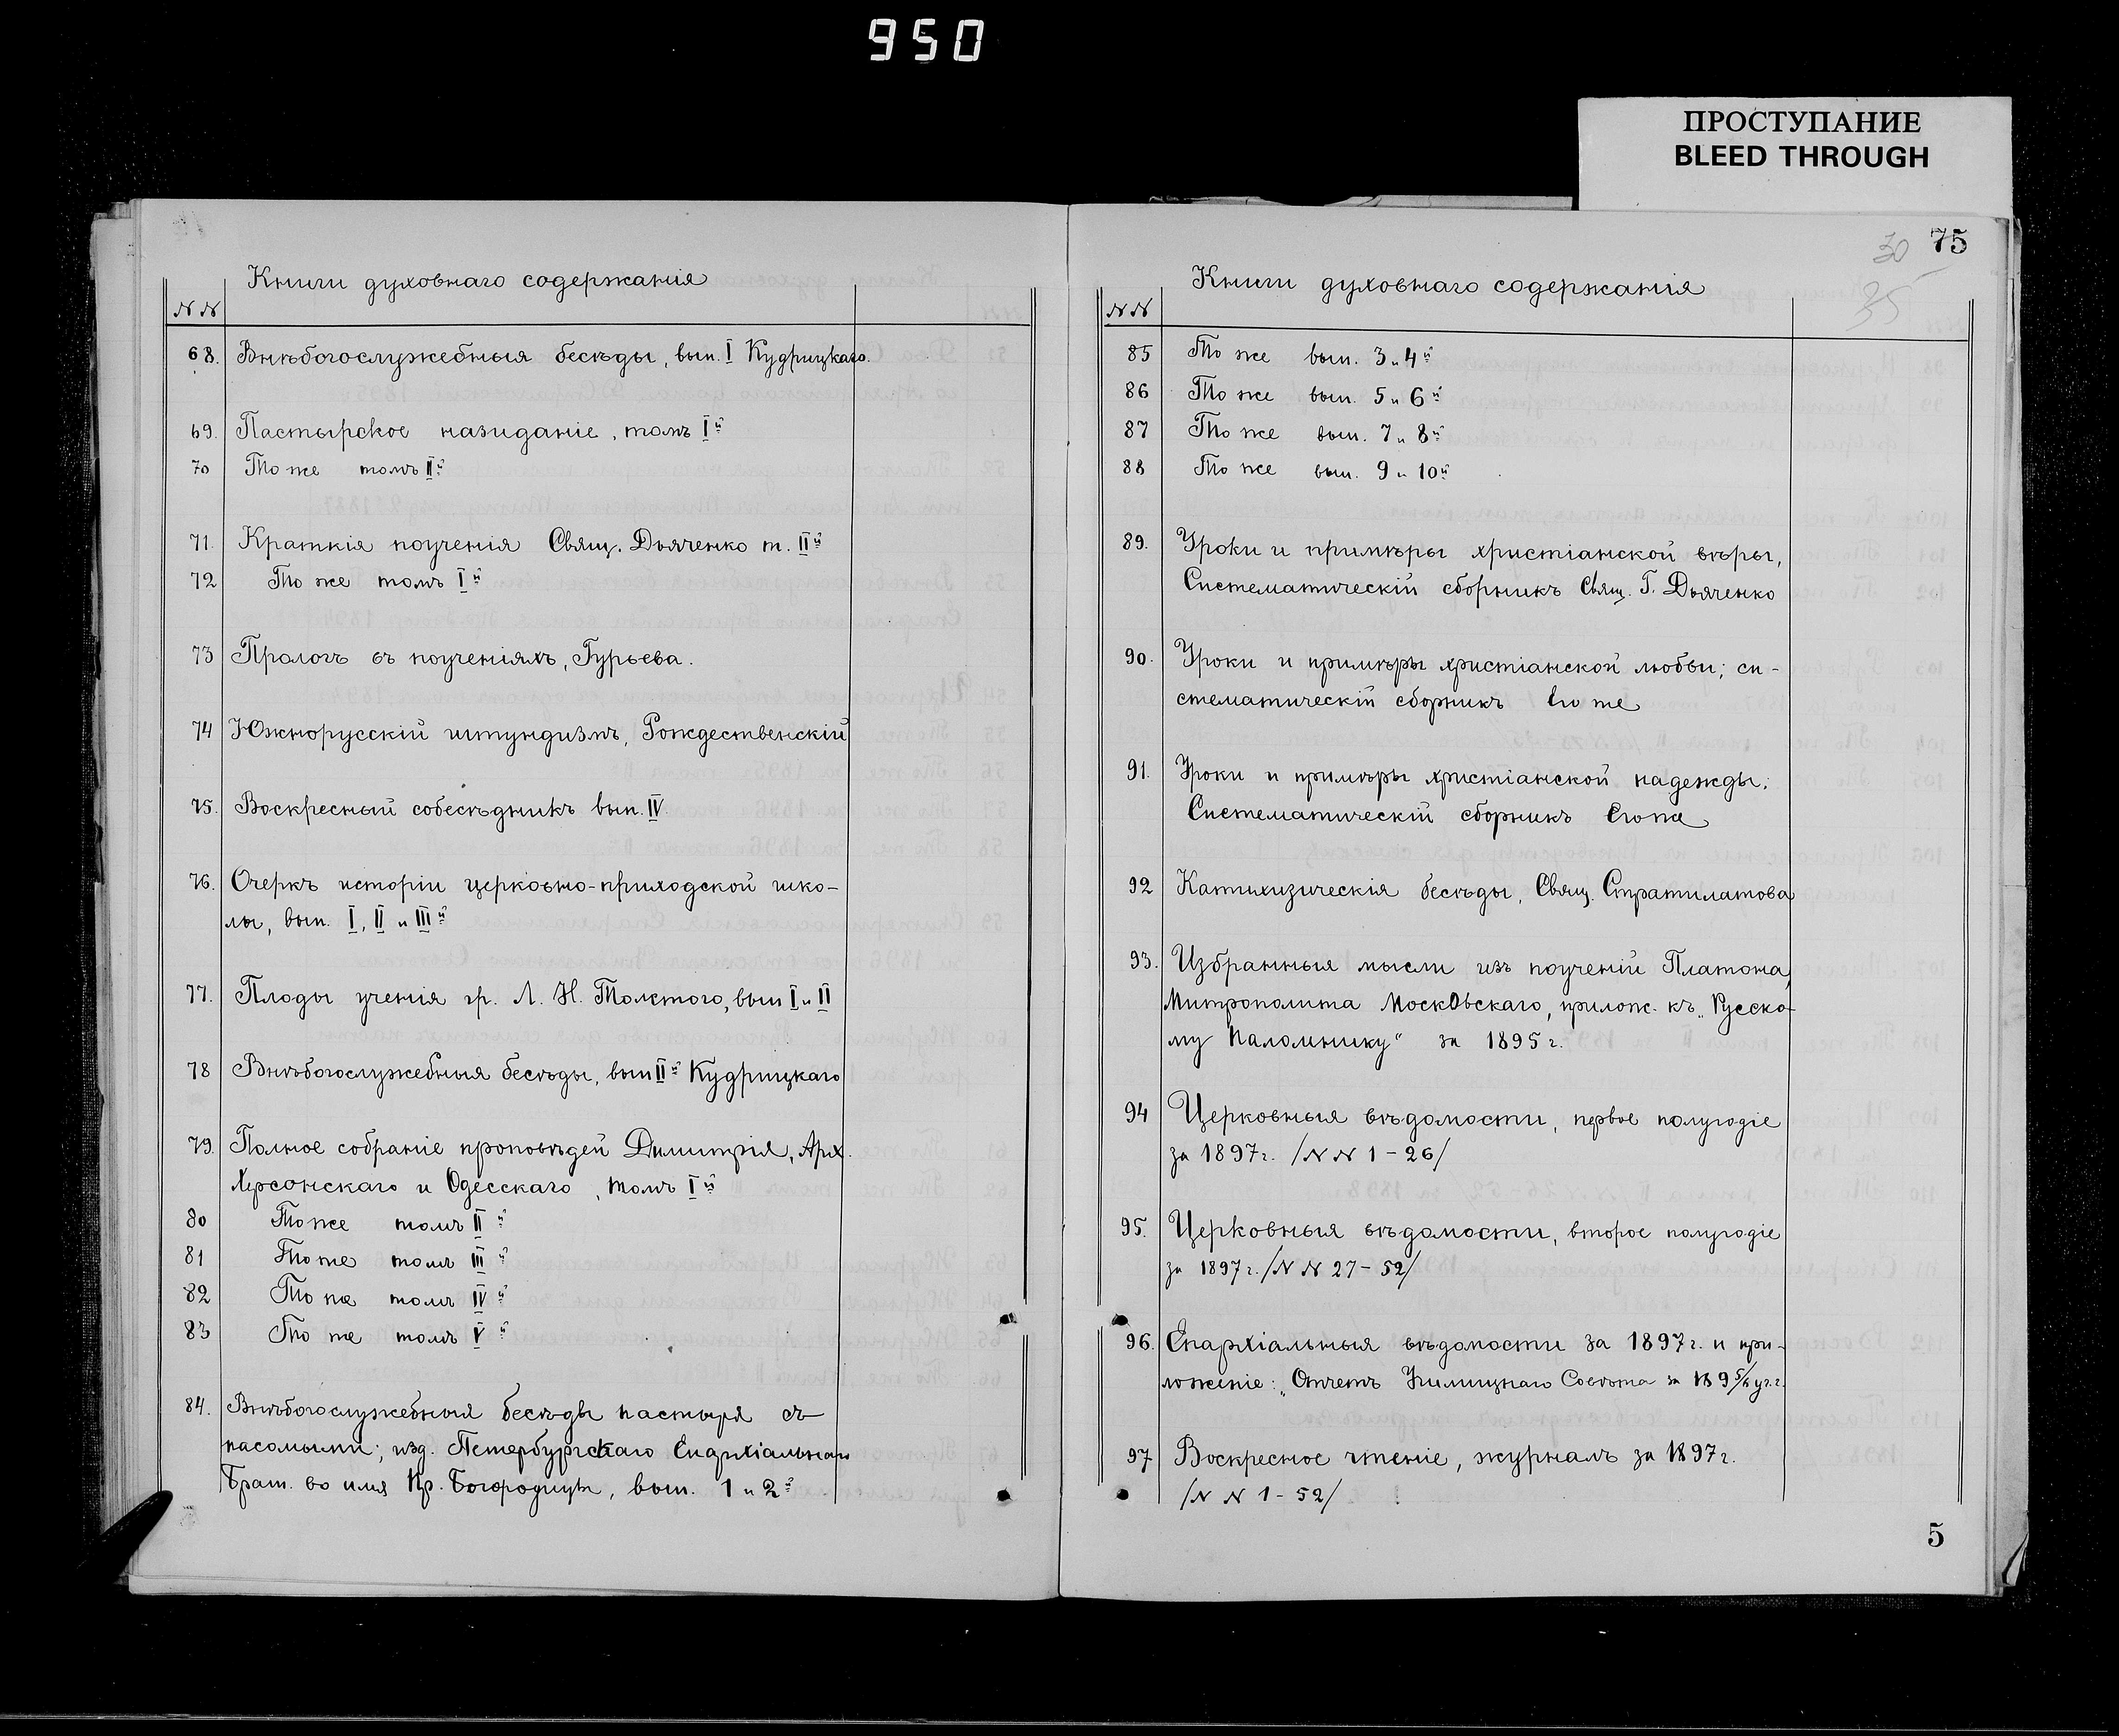 950
ПРОСТУПАНИЕ
BLEED THROUGH
Книги духовнаго содержанія
№ №
68. Внѣбогослужебныя бесѣды, вып. I Кудрицкаго.
69. Пастырское назиданіе, томъ I й
70 То же томъ II й
71. Краткія поученія Свящ. Дьяченко т. II й
72 То же томъ I й
73 Прологъ въ поученіяхъ, Гурьева.
74 Южнорусскій штундизмъ, Рождественскій
75. Воскресный собесѣдникъ вып. IV.
76. Очеркъ исторіи церковно-приходской шко-
лы, вып. I, II и III й
77. Плоды ученія гр. Л. Н. Толстого, вып I и II
78 Внѣбогослужебныя бесѣды, вып II й Кудрицкаго
79. Полное собраніе проповѣдей Димитрія, Арх.
Херсонскаго и Одесскаго, томъ I й
80 То же томъ II й
81 То же томъ III й
82 То же томъ IV й
83 То же томъ V й
84. Внѣбогослужебныя бесѣды пастыря съ
пасомыми; изд. Петербургскаго Епархіальнаго
Брат. во имя Пр. Богородицы, вып. 1 и 2 й
30 75
35
Книги духовнаго содержанія
№ №
85 То же вып. 3 и 4 й
86 То же вып. 5 и 6 й
87 То же вып. 7 и 8 й
88 То же вып. 9 и 10 й
89. Уроки и примѣры христіанской вѣры,
Систематическій сборникъ Свящ. Г. Дьяченко
90. Уроки и примѣры христіанской любви; си-
стематическій сборникъ его же
91. Уроки и примѣры христіанской надежды;
Систематическій сборникъ Его же
92 Катихизическія бесѣды, Свящ. Стратилатова
93. Избранныя мысли изъ поученій Платона,
Митрополита Московскаго, прилож. къ „Русско-
му Паломнику“ за 1895 г.
94 Церковныя вѣдомости, первое полугодіе
за 1897 г. /№ № 1 - 26/
95. Церковныя вѣдомости, второе полугодіе
за 1897 г. /№ № 27 - 52/
96. Епархіальныя вѣдомости за 1897 г. и при-
ложеніе: „Отчетъ Училищнаго Совѣта за 189 5/6 уч. г.
97 Воскресное чтеніе, журналъ за 1897 г.
/№ № 1 - 52/
5